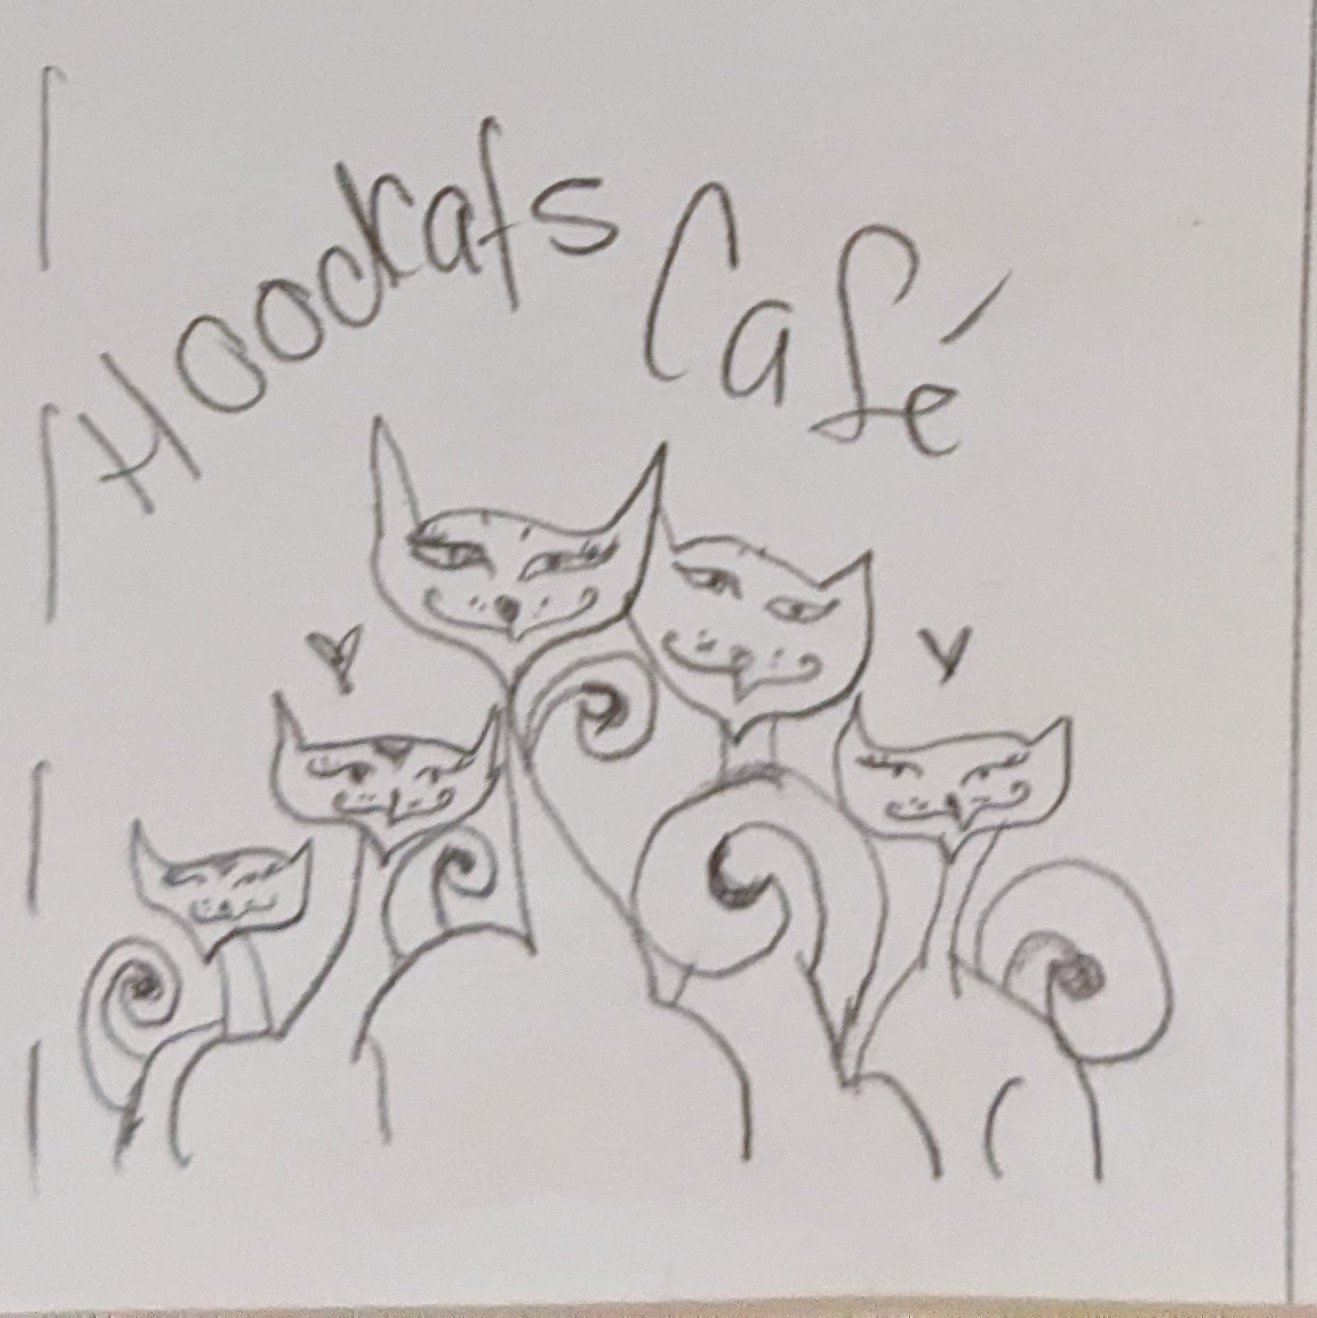 Hoodkats Café